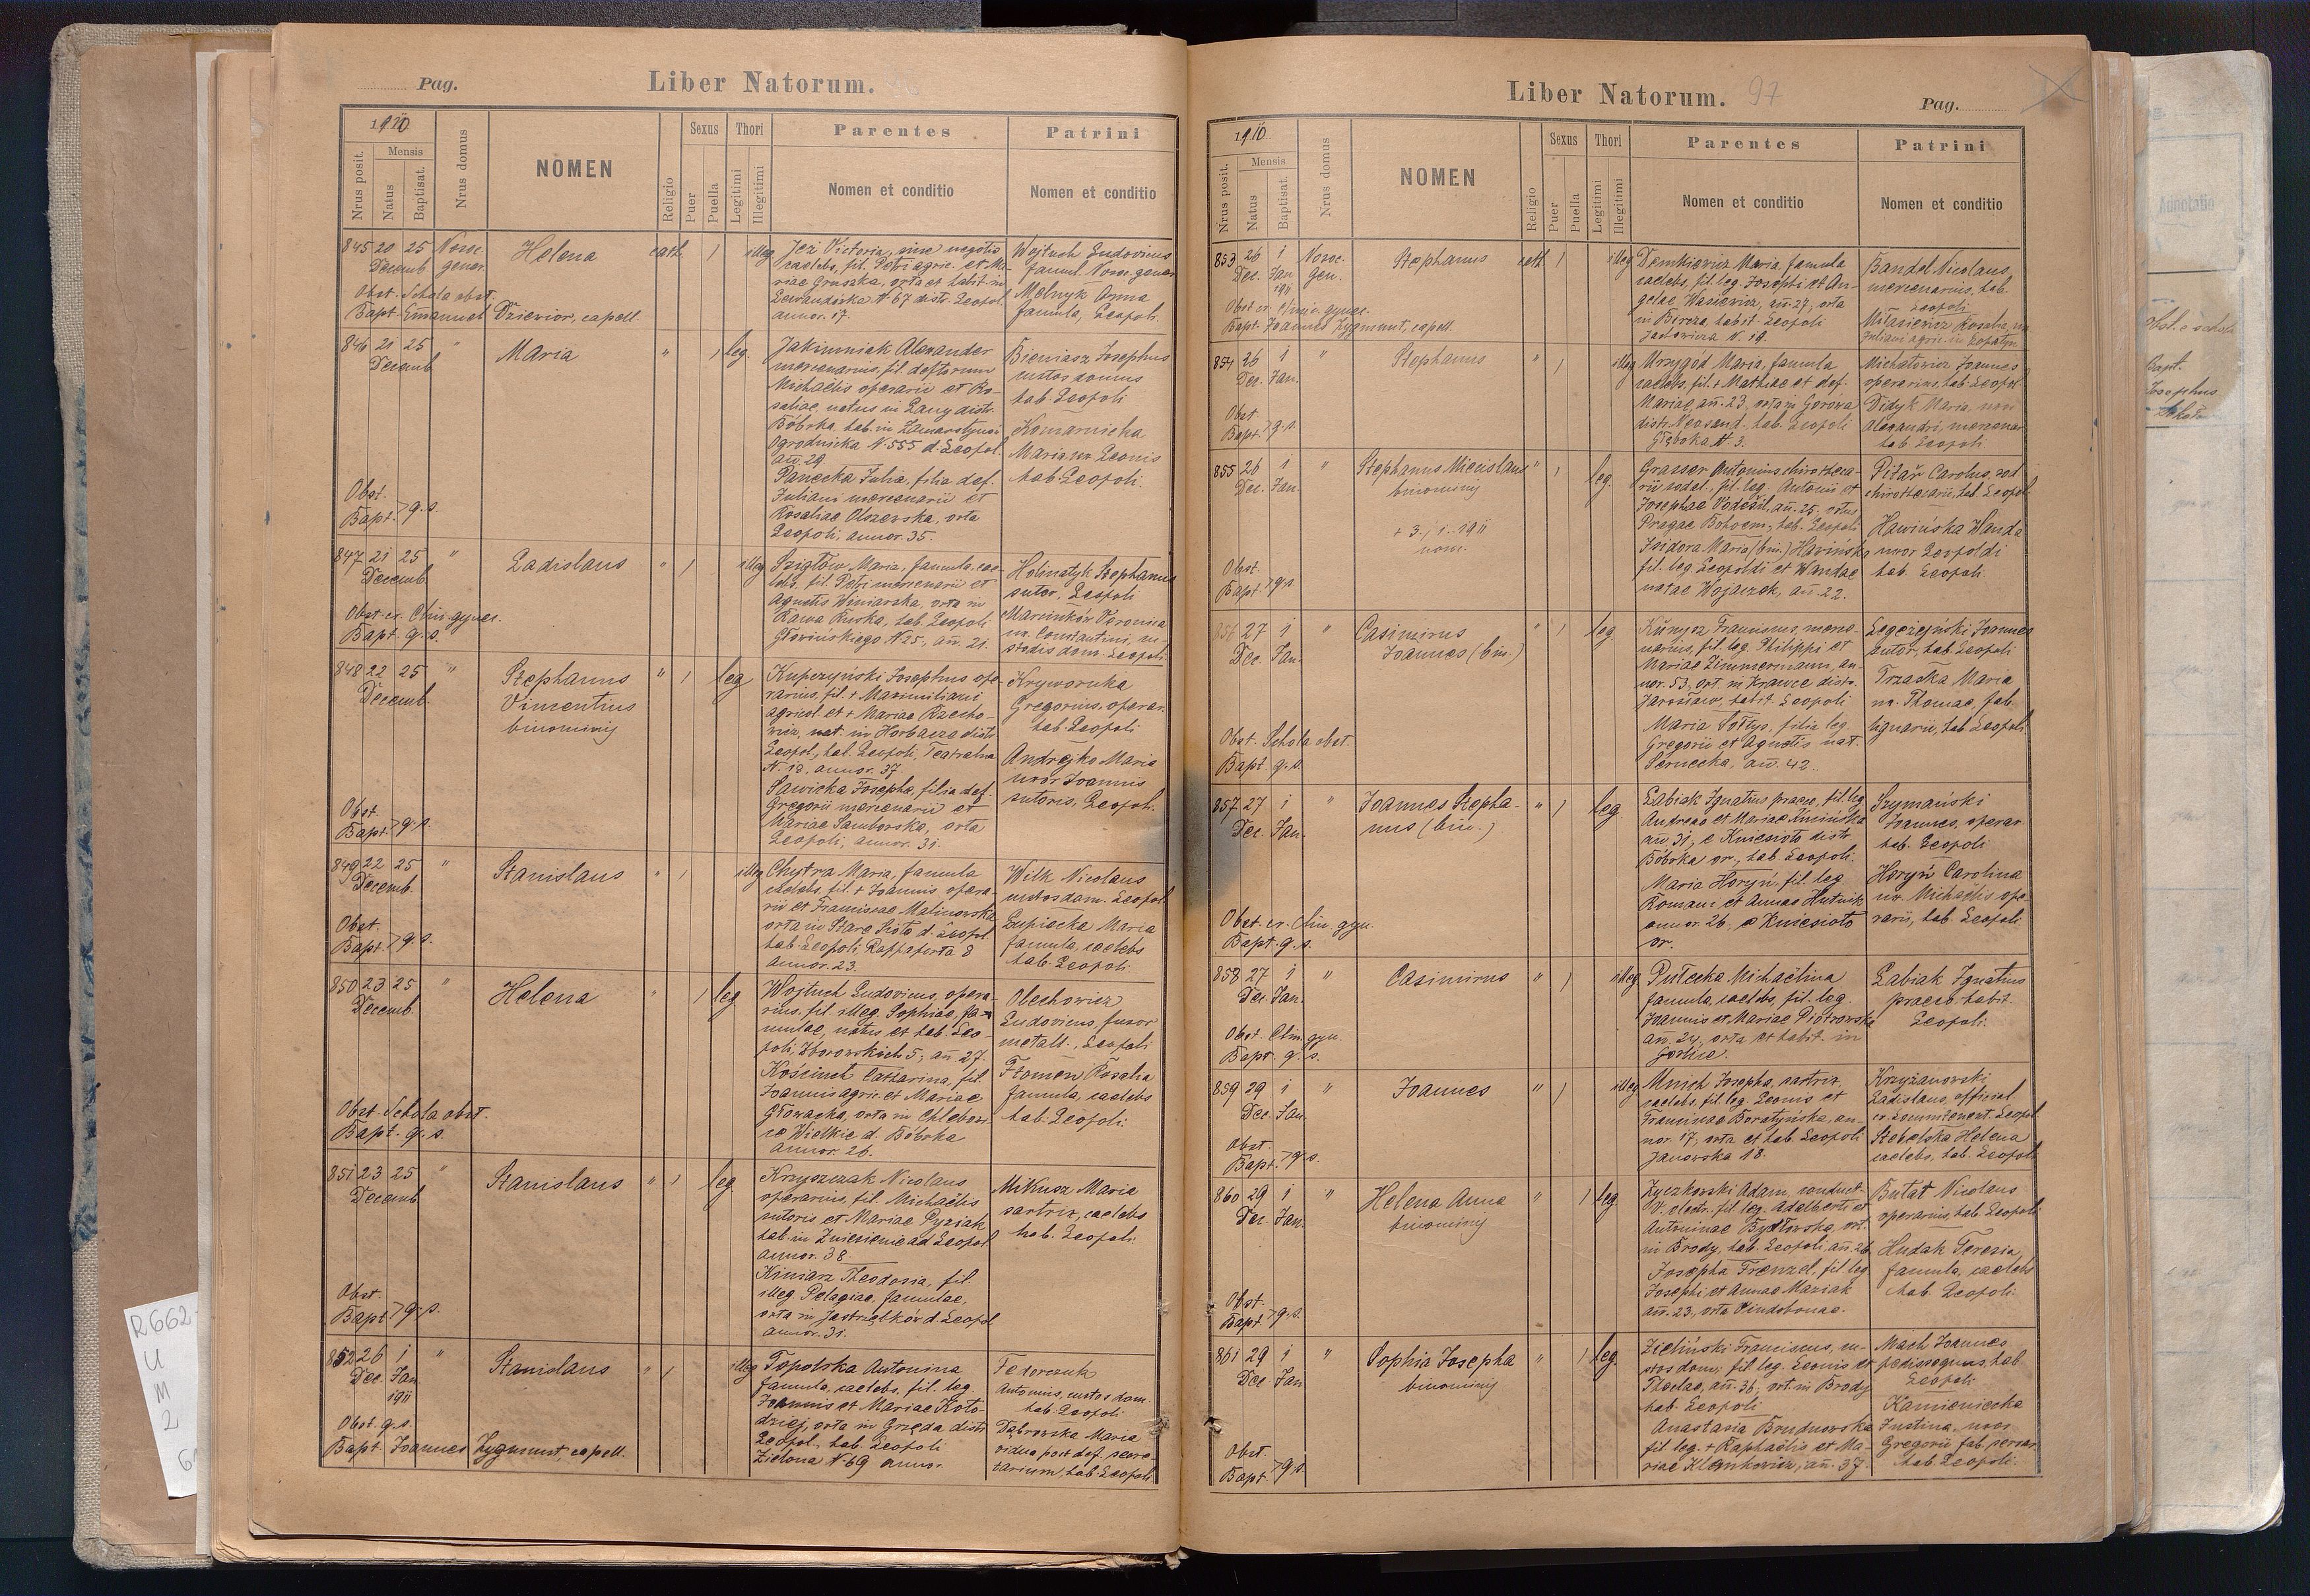 Pag.
Liber Natorum.
1910
Nrus posit.
Mensis
Natus
Baptisat.
Nrus domus
NOMEN
Religio
Sexus
Puer
Puella
Thori
Legitimi
Illegitimi
Parentes
Nomen et conditio
Patrini
Nomen et conditio
845 20 25 Nosoc.
Decemb gener.
Helena
cath. 1 illeg
Jezi Victoria, sine negotio
caelebs, fil. Petri agric. et Ma-
riae Gruszka, orta et habit. in
Lewandówka N. 67 distr. Leopol
annor. 17.
Wojtuch Ludovicus
famul. Nosoc. gener.
Melnyk Anna
famula, Leopoli.
Obst. Schola obst.
Bapt. Emanuel Dziewior, capell.
846 21 25 "
Decemb
Maria
" 1 leg.
Jakimniak Alexander
mercenarius, fil. deftorum
Michaëlis operarii et Ro-
saliae, natus in Łany distr.
Bóbrka, hab. in Zamarstynów
Ogrodnicka N. 555 d. Leopol.
añ. 29.
Panecka Julia, filia def.
Juliani mercenarii et
Rosaliae Olszewska, orta
Leopoli, annor. 35.
Bieniasz Josephus
custos domus
hab. Leopoli
Komarnicka
Maria ux. Leonis
hab. Leopoli.
Obst.
Bapt. q. s.
847 21 25 "
Decemb
Ladislaus
" 1 illeg
Szigłów Maria, famula cae-
lebs, fil. Petri mercenarii et
Agnetis Winiarska, orta in
Rawa Ruska, hab. Leopoli
Głowińskiego N. 25, añ. 21.
Holinatyk Stephanus
sutor, Leopoli
Marcinków Veronica
ux. Constantini, cu-
stodis dom. Leopoli.
Obst. ex Clin. gynec.
Bapt. q. s.
848 22 25 "
Decemb.
Stephanus
Vincentius
binominis
" 1 leg
Kupczyński Josephus ope-
rarius, fil. + Maximiliani
agricol. et + Mariae Rzecho-
wicz, nat. in Horbacze distr.
Leopol., hab. Leopoli, Teatralna
N. 18, annor. 37.
Sawicka Josepha, filia def.
Gregorii mercenarii et
Mariae Samborska, orta
Leopoli, annor. 31.
Kryworuka
Gregorius, operar.
hab. Leopoli
Andrejko Maria
uxor Joannis
sutoris, Leopoli.
Obst.
Bapt. q. s.
849 22 25 "
Decemb.
Stanislaus
" 1 illeg
Chytra Maria, famula
caelebs, fil. + Joannis opera-
rii et Franciscae Malinowska
orta in Stare Sioło d. Leopol
hab. Leopoli, Rappaporta 8
annor. 23.
Wilk Nicolaus
custos dom. Leopol.
Łupiacka Maria
famula, caelebs
hab. Leopoli.
Obst.
Bapt. q. s.
850 23 25 "
Decemb.
Helena
" 1 leg
Wojtuch Ludovicus, opera-
rius, fil. illeg. Sophiae, fa-
mulae, natus et hab. Leo-
poli, Zborowskich 5, añ. 27.
Kościuch Catharina, fil.
Joannis agric. et Mariae
Głowacka, orta in Chlebowi-
ce Wielkie d. Bóbrka
annor. 26.
Olechowicz
Ludovicus, fusor
metall., Leopoli
Fłomen Rosalia
famula, caelebs
hab. Leopoli.
Obst. Schola obst.
Bapt. q. s.
851 23 25 "
Decemb
Stanislaus
" 1 leg.
Krzyszczak Nicolaus
operarius, fil. Michaëlis
sutoris et Mariae Pyziak
hab. in Zniesienie ad Leopol.
annor. 38.
Kiniarz Theodosia, fil.
illeg. Pelagiae, famulae,
orta in Jastrzębków d. Leopol
annor. 31.
Mikusz Maria
sartrix, caelebs
hab. Leopoli.
Obst.
Bapt. q. s.
852 26 1 "
Dec. Jan
1911
Stanislaus
" 1 illeg
Topolska Antonina
famula, caelebs, fil. leg.
Joannis et Mariae Koło-
dziej, orta in Grzęda distr.
Leopol., hab. Leopoli
Zielona N. 69 annor.
Fedorczuk
Antonius, custos dom.
hab. Leopoli
Dąbrowska Maria
vidua post def. secre-
tarium, hab. Leopoli.
Obst. q. s.
Bapt. Joannes Zygmunt, capell.
Liber Natorum. 97
Pag.
1910
Nrus posit.
Mensis
Natus
Baptisat.
Nrus domus
NOMEN
Religio
Sexus
Puer
Puella
Thori
Legitimi
Illegitimi
Parentes
Nomen et conditio
Patrini
Nomen et conditio
853 26 1 Nosoc.
Dec. Jan Gen.
1911
Stephanus
cath. 1 illeg
Demkiewicz Maria, famula
caelebs, fil. leg. Josephi et An-
gelae Wasiewicz, añ. 27, orta
in Bircza, habit. Leopoli
Jachowicza N. 19.
Bandel Nicolaus,
mercenarius, hab.
Leopoli
Milasiewicz Rosalia, ux.
Juliani agric. in Łopatyn
Obst. ex Clinic. gynec.
Bapt. Joannes Zygmunt, capell.
854 26 1 "
Dec. Jan.
Stephanus
" 1 illeg
Mrzygód Maria, famula
caelebs, fil. + Mathiae et def.
Mariae, añ. 23, orta in Gorowa
distr. Neosand., hab. Leopoli
Głęboka N. 3.
Michałowicz Joannes
operarius, hab. Leopol.
Didyk Maria, uxor
Alexandri, mercenar.
hab. Leopoli
Obst.
Bapt. q. s.
855 26 1 "
Dec. Jan.
Stephanus Miecislaus
binominis
+ 3./1. 1911
nom.
" 1 leg
Grasser Antonius chirotheca-
rii sodal., fil. leg. Antonii et
Josephae Voděšil, añ. 25, ortus
Pragae Bohoem., hab. Leopoli
Isidora Maria (bin.) Hawińska
fil. leg. Leopoldi et Wandae
natae Wojaczek, añ. 22.
Pitař Carolus, sod.
chirothecarii, hab. Leopol.
Hawińska Wanda
uxor Leopoldi
hab. Leopoli.
Obst.
Bapt. q. s.
856 27 1 "
Dec. Jan.
Casimirus
Joannes (bin.)
" 1 leg.
Künysz Franciscus, merce-
narius, fil. leg. Philippi et
Mariae Zimmermann, an-
nor. 53, ort. in Krawce distr.
Jarosław, habit. Leopoli
Maria Sołtys, filia leg.
Gregorii et Agnetis nat.
Sernecka, añ. 42.
Legeżyński Joannes
sutor, hab. Leopoli
Trzaska Maria
ux. Thomae, fab.
lignarii, hab. Leopoli.
Obst. Schola obst.
Bapt. q. s.
857 27 1 "
Dec. Jan.
Joannes Stepha-
nus (bin.)
" 1 leg.
Łabiak Ignatius praeco, fil. leg.
Andreae et Mariae Kmińska
añ. 31, e Kniesioło distr.
Bóbrka or., hab. Leopoli.
Maria Horyń, fil. leg.
Romani et Annae Hutnik
annor. 26, e Kniesioło
or.
Szymański
Joannes, operar.
hab. Leopoli
Horyń Carolina
ux. Michaëlis ope-
rarii, hab. Leopoli.
Obst. ex Clin. gyn.
Bapt. q. s.
858 27 1 "
Dec. Jan.
Casimirus
" 1 illeg
Pułecka Michaëlina
famula, caelebs, fil. leg.
Joannis et Mariae Piotrowska
añ. 24, orta et habit. in
Gorlice.
Łabiak Ignatius
praeco habit.
Leopoli.
Obst. Clin. gyn.
Bapt. q. s.
859 29 1 "
Dec. Jan
Joannes
" 1 illeg
Mnich Josepha, sartrix,
caelebs, fil. leg. Leonis et
Franciscae Boratyńska, an-
nor. 17, orta et hab. Leopoli
Janowska 18.
Krzyżanowski
Ladislaus, official.
Leopol
Stebelska Helena
caelebs, hab. Leopoli
Obst.
Bapt. q. s.
860 29 1 "
Dec. Jan.
Helena Anna
binominis
" 1 leg.
Życzkowski Adam, conduct.
V. electr. fil. leg. Adalberti et
Antoninae Bydłowska, ort.
in Brody, hab. Leopoli, añ. 26.
Josepha Frenzel, fil. leg.
Josephi et Annae Maziak
añ. 23, orta Vindobonae.
Butat Nicolaus
operarius, hab. Leopoli
Hudak Teresia,
famula, caelebs
hab. Leopoli.
Obst.
Bapt. q. s.
861 29 1 "
Dec. Jan
Sophia Josepha
binominis
" 1 leg.
Zieliński Franciscus, cu-
stos dom., fil. leg. Leonis et
Theclae, añ. 36, ort. in Brody
hab. Leopoli
Anastasia Brudnowska
fil. leg. + Raphaëlis et Ma-
riae Klankowicz, añ. 37.
Mach Joannes
pedissequus, hab.
Leopoli
Kamieniecka
Justina, uxor
Gregorii fab. serrar.
hab. Leopoli.
Obst.
Bapt. q. s.
Adnotatio
Obst. e schola
Bapt.
Josephus
R662
U
M
2